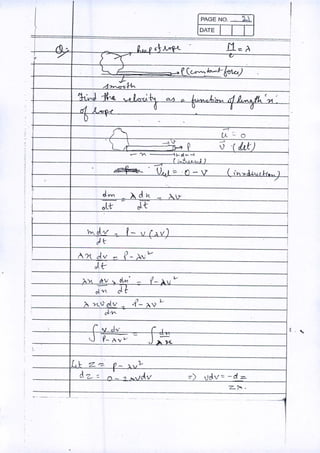 PAGE NO. 21
DATE
Q:- heap of rope M/l = λ
P (constant force)
smooth
Find the velocity as a function of length 'x'
of rope
u = 0
→ v P v (let)
x dx
(increased)
V_rel = 0 - v (in x direction)
dm/dt = λ dx/dt = λv
m dv/dt = P - v(λv)
λx dv/dt = P - λv²
λx dv/dx × dx/dt = P - λv²
λxv dv/dx = P - λv²
∫ v dv/(P - λv²) = ∫ dx/(λx)
Let z = P - λv²
dz = 0 - 2λvdv ⇒ vdv = -dz/2λ